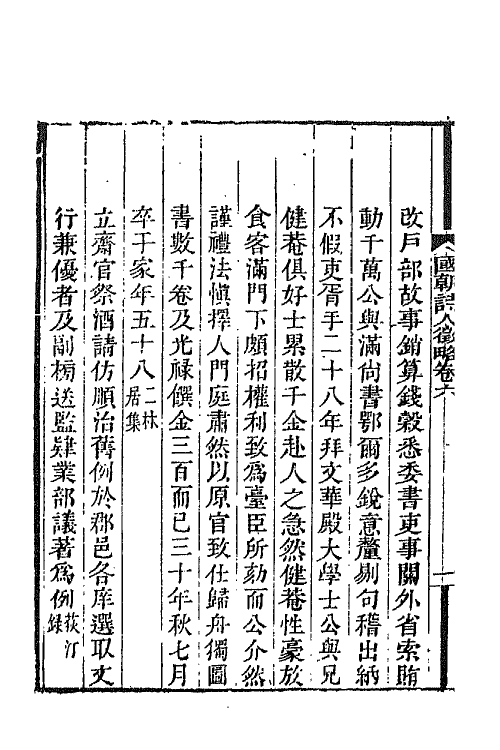 國朝詩人徵略卷六
一
改戶部故事銷算錢穀悉委書吏事關外省索賄
動千萬公與滿尙書鄂爾多銳意釐剔句稽出納
不假吏胥手二十八年拜文華殿大學士公與兄
健菴俱好士累散千金赴人之急然健菴性豪放
食客滿門下頗招權利致爲臺臣所劾而公介然
謹禮法愼擇人門庭肅然以原官致仕歸舟獨圖
書數千卷及光祿饌金三百而已三十年秋七月
卒于家年五十八二林居集
立齋官祭酒請仿順治舊例於郡邑各庠選取文
行兼優者及副榜送監肄業部議著爲例荻汀錄